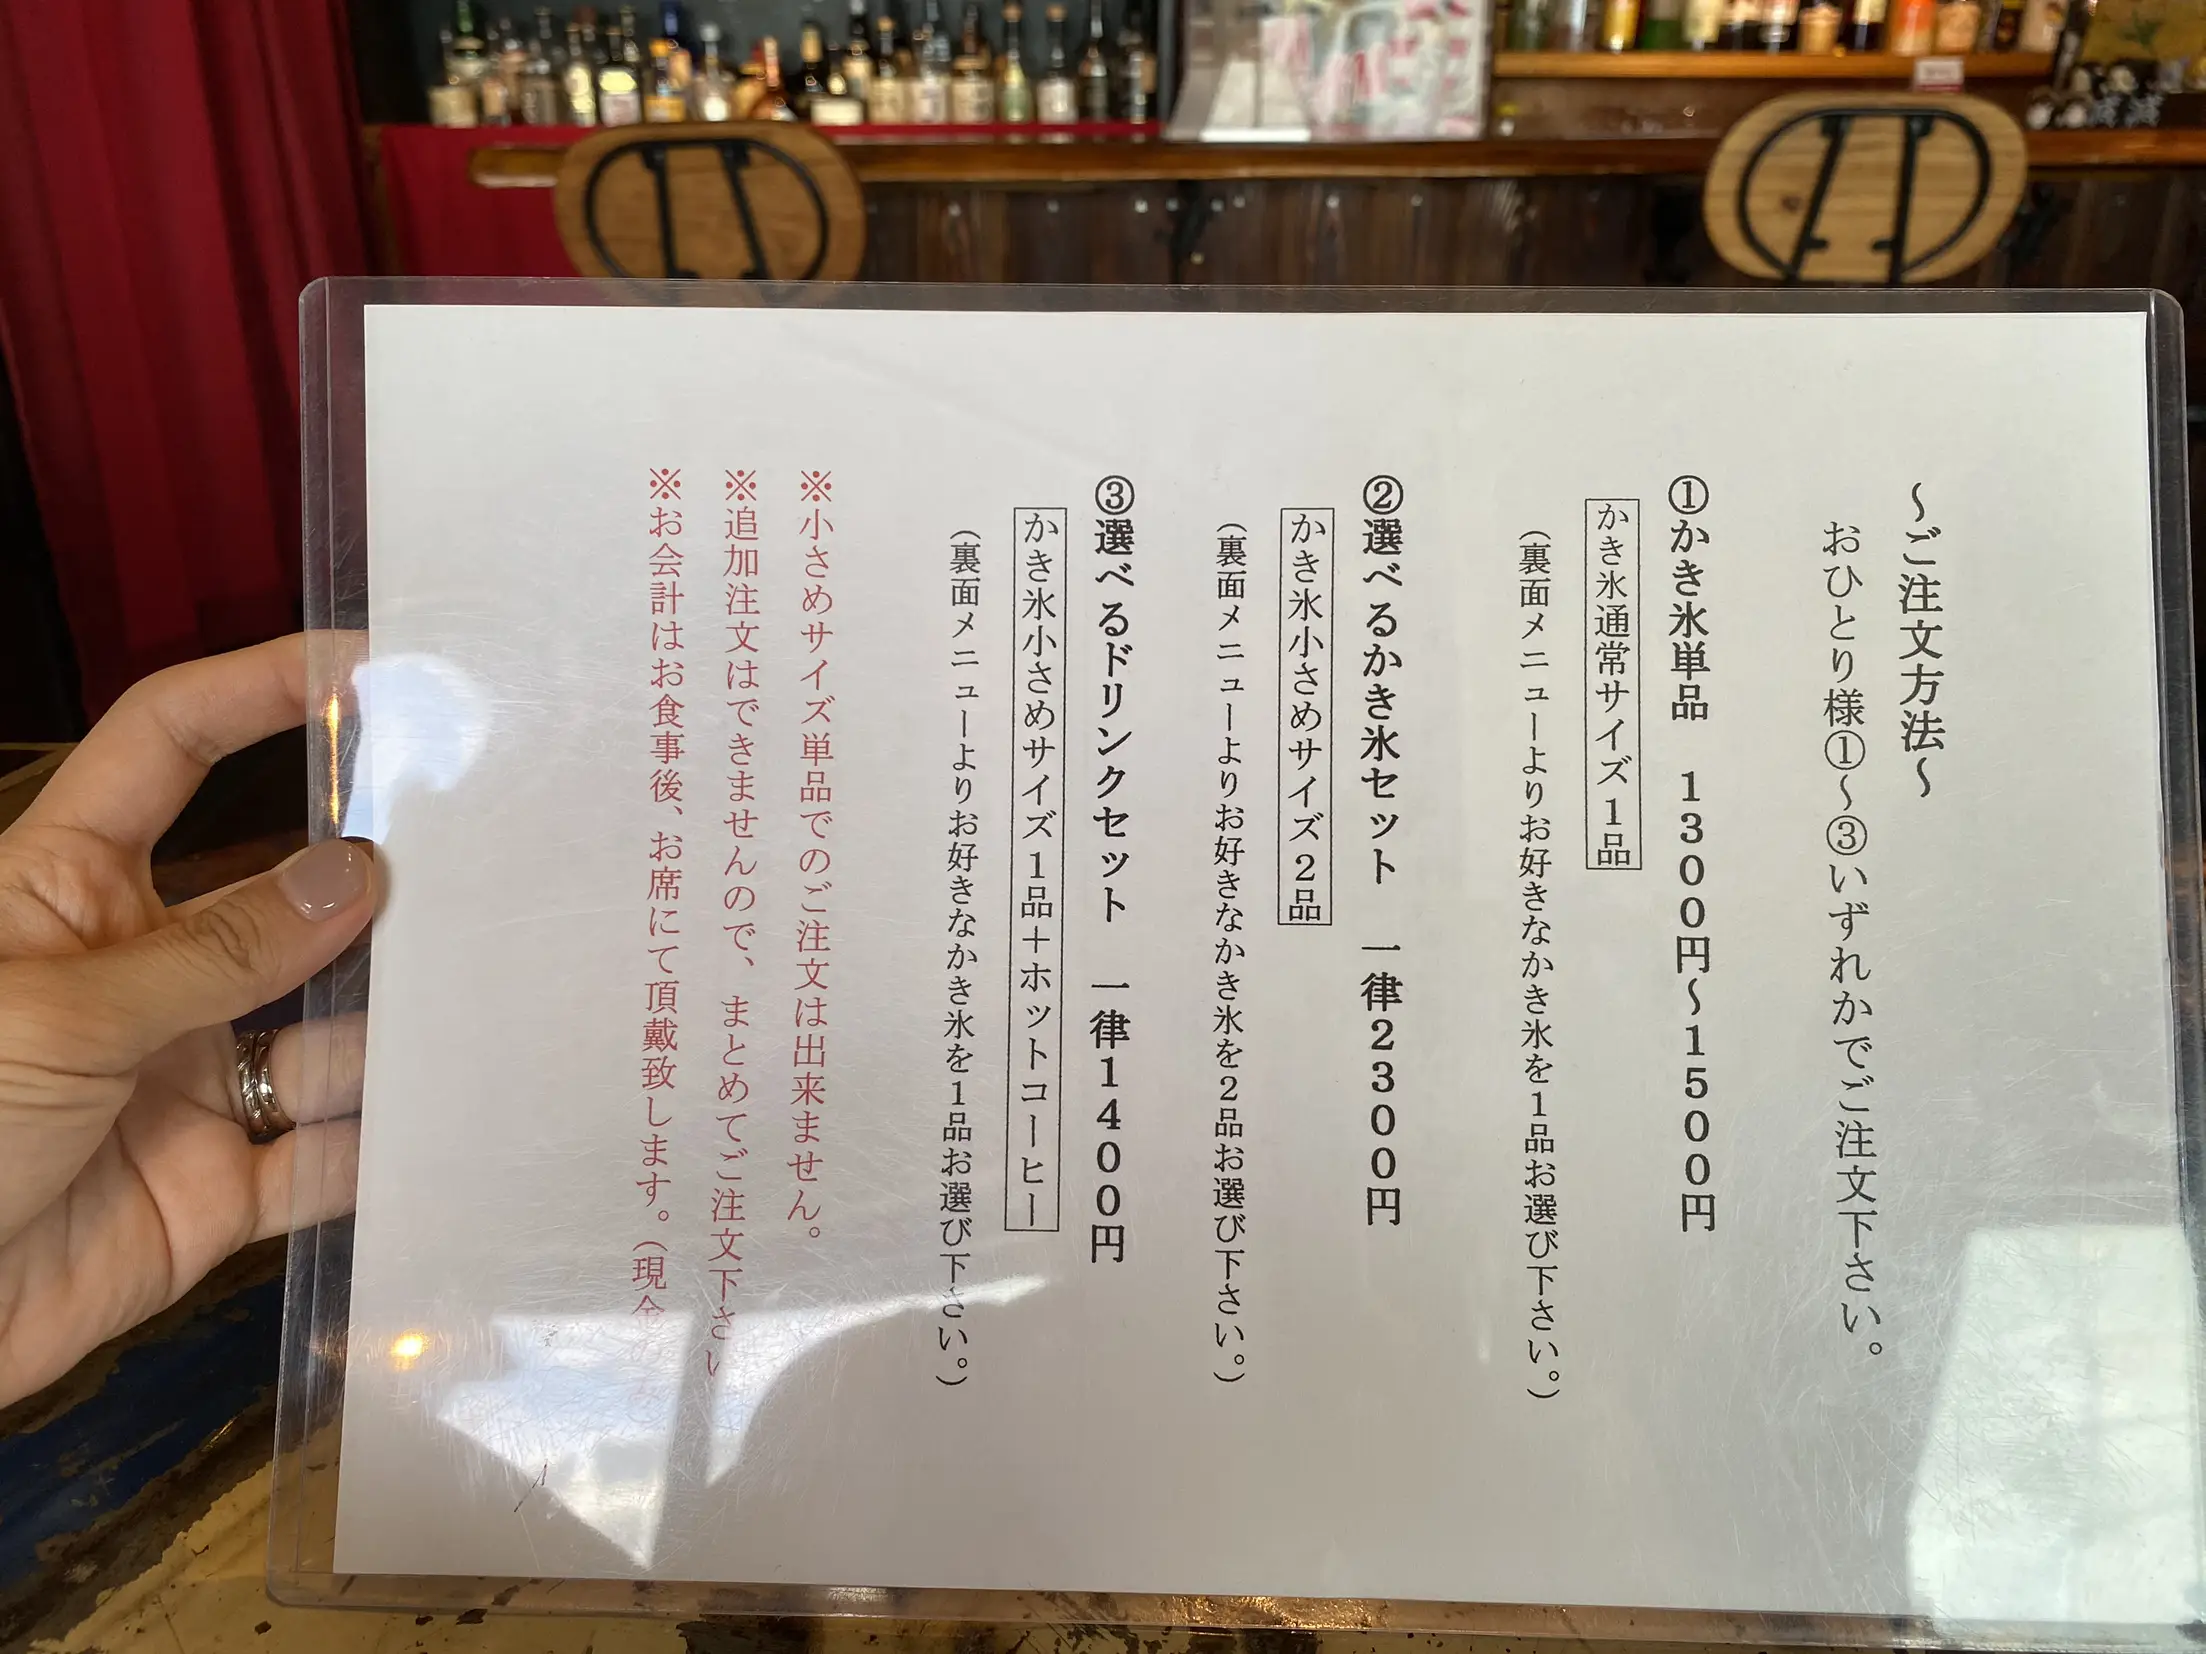 ～ご注文方法～
おひとり様①～③いずれかでご注文下さい。
①かき氷単品　１３００円～１５００円
かき氷通常サイズ１品
（裏面メニューよりお好きなかき氷を１品お選び下さい。）
②選べるかき氷セット　一律２３００円
かき氷小さめサイズ２品
（裏面メニューよりお好きなかき氷を２品お選び下さい。）
③選べるドリンクセット　一律１４００円
かき氷小さめサイズ１品＋ホットコーヒー
（裏面メニューよりお好きなかき氷を１品お選び下さい。）
※小さめサイズ単品でのご注文は出来ません。
※追加注文はできませんので、まとめてご注文下さい
※お会計はお食事後、お席にて頂戴致します。（現金のみ）